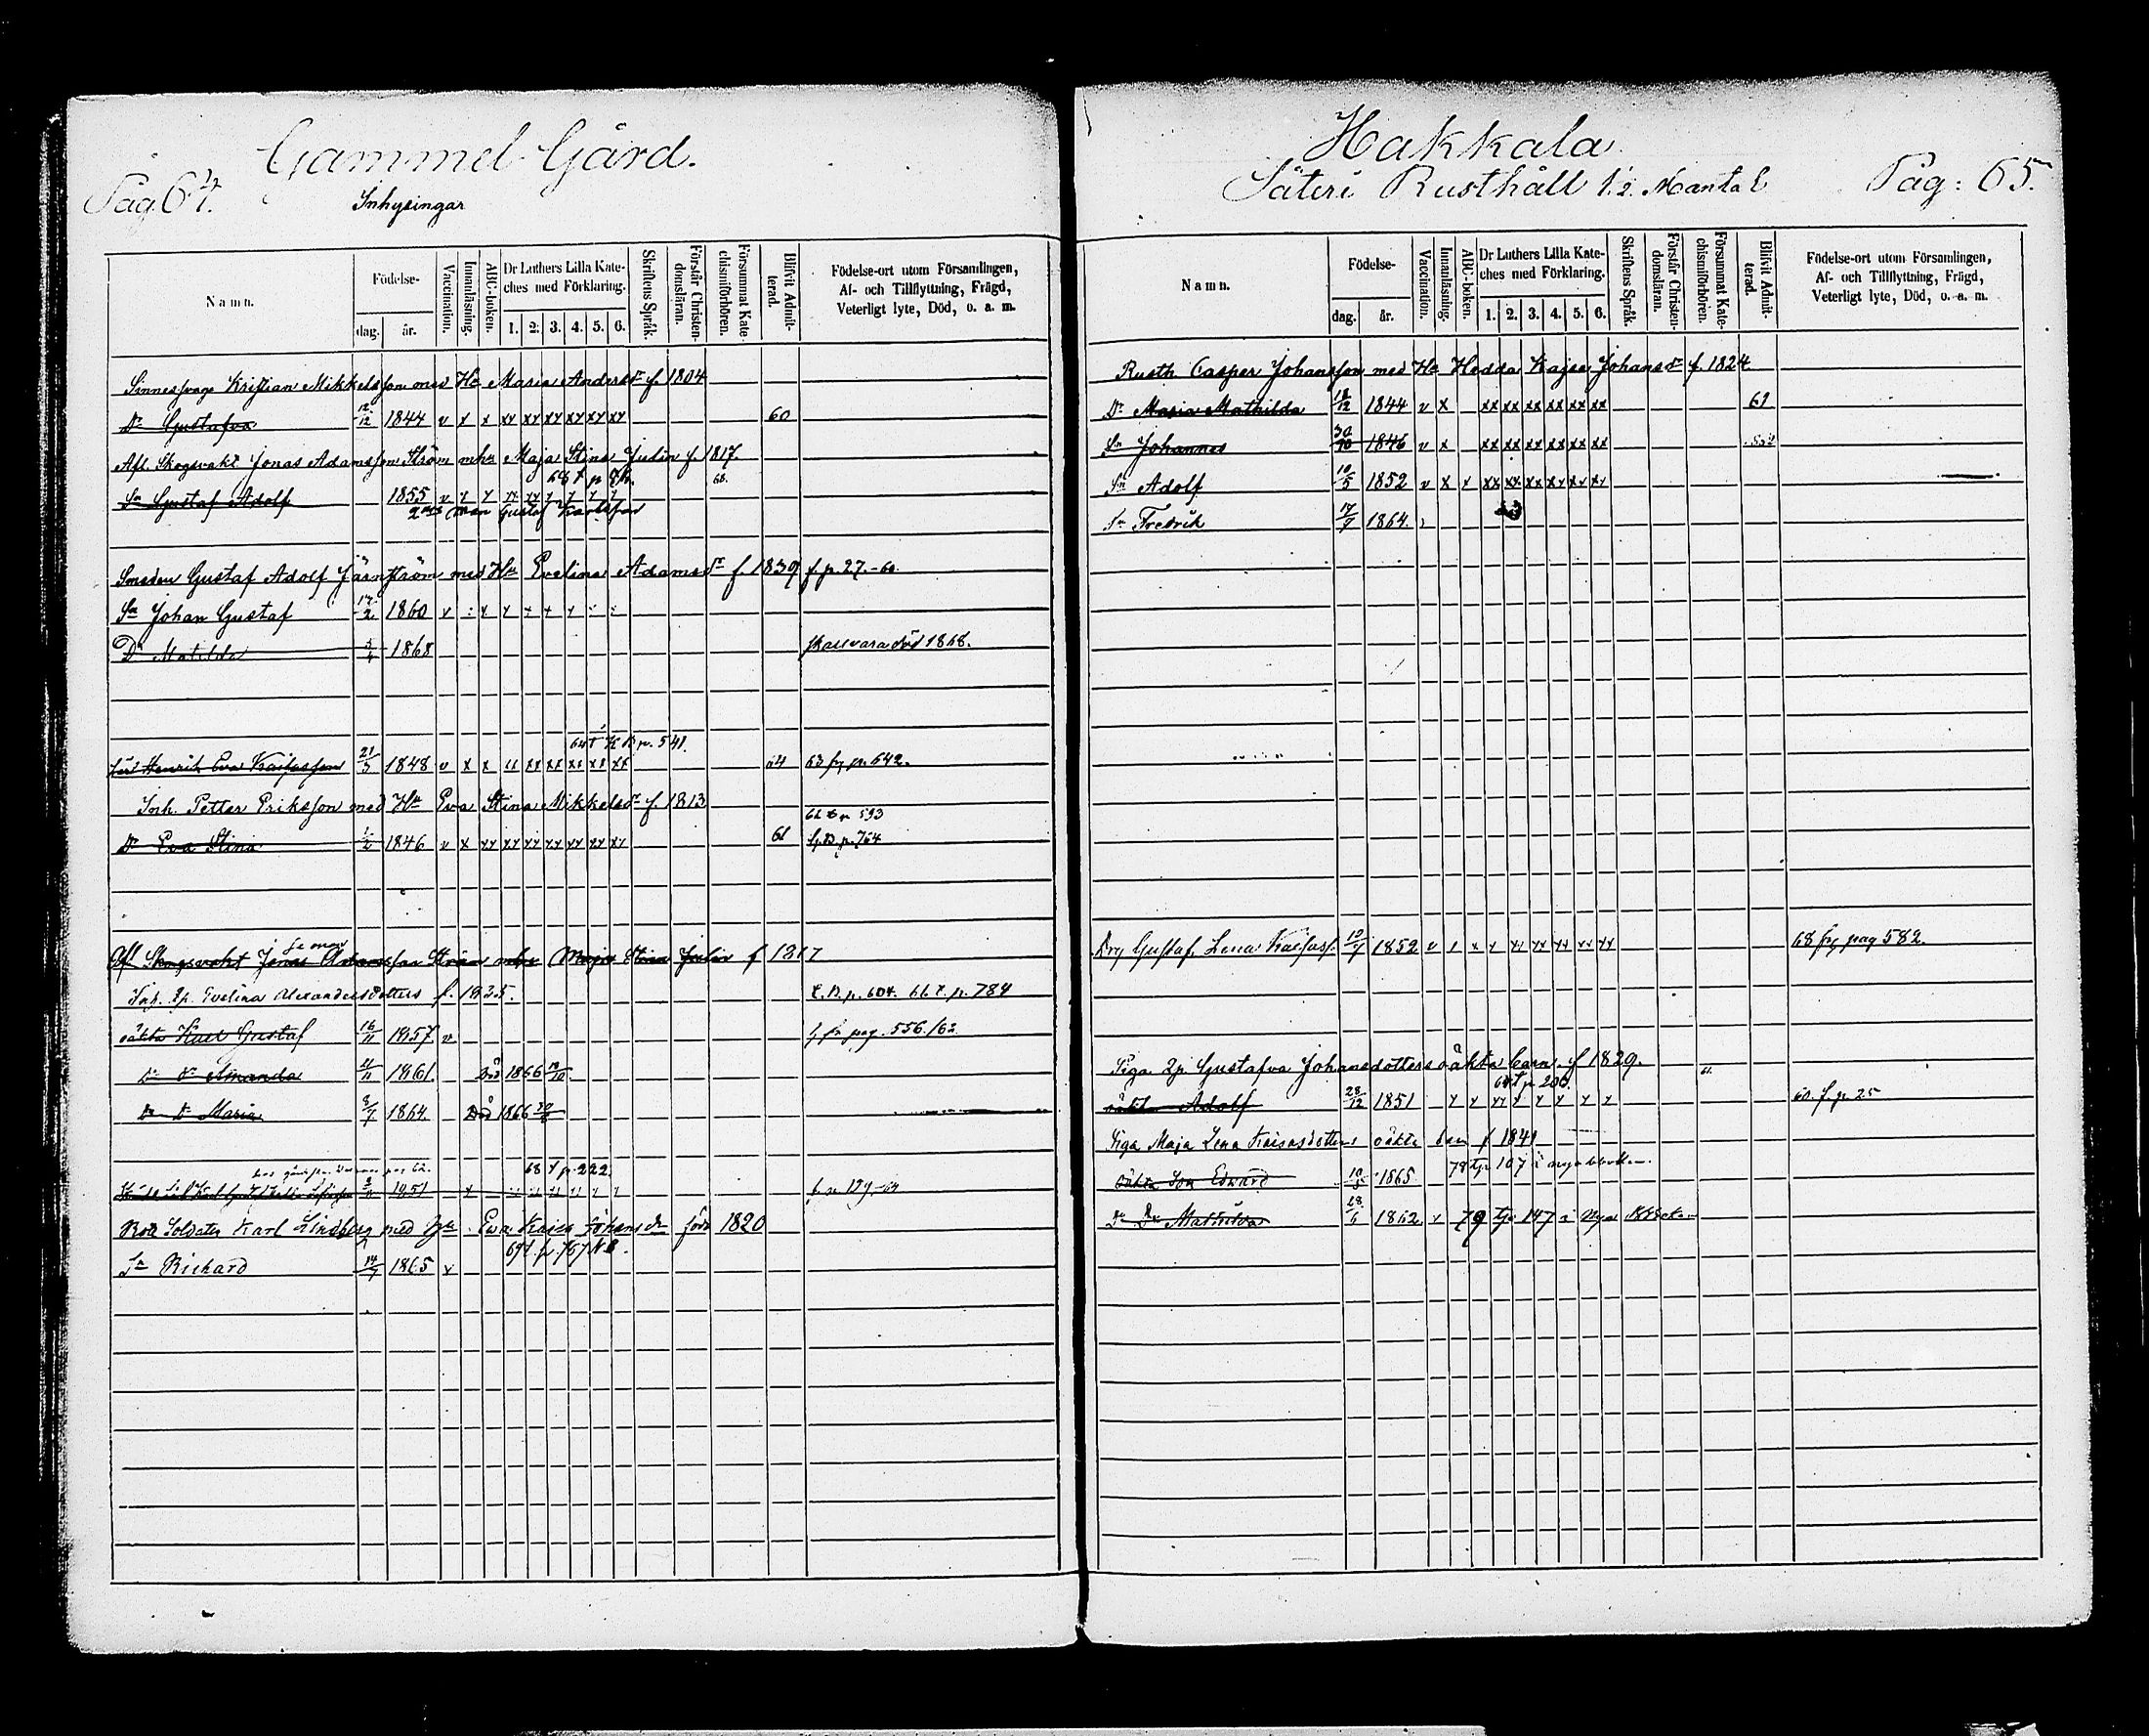 Gammel Gård.
Pag. 64.
Inhysingar
Namn. Födelse- dag. år. Vaccination. Innanläsning. ABC-boken. Dr Luthers Lilla Kateches med Förklaring. 1. 2. 3. 4. 5. 6. Skriftens Språk. Förstår Christendomsläran. Försummat Katechismiförhören. Blifvit Admitterad. Födelse-ort utom Församlingen, Af- och Tillflyttning, Frägd, Veterligt lyte, Död, o. a. m.
Kristian Mikkelsson med Hu Maria Andersdr f. 1804
Dr Gustafva 12/12 1844 v x x xx xx xx xx xx xx 60
Afl. Skogsvakt Jonas Adamsson Ström mhu Maja Stina Julin f. 1817
68 t p
Sn Gustaf Adolf 1855 v
2dra Man Gustaf Karlsson
Smeden Gustaf Adolf Järnström med Hu Evelina Adamsdr f. 1839 f. p. 27.-60
Sn Johan Gustaf 17/2 1860
Dr Matilda 1868 skall vara död 1868.
64 t K B p. 541.
Henrik Eva Kaisasson 21/3 1848 v x x xx xx xx xx xx 64 63 fr p. 642.
Inh. Petter Eriksson med Hu Eva Stina Mikkelsdr f. 1813
66 t p 593
Dr Eva Stina 1/2 1846 v x xx xx xx xx xx xx xx 61 p. 764
Afl Skogsvakt Jonas Adamsson Ström mhu Maja Stina Julin f 1817
Inh. Qp. Evelina Alexandersdotters f. 1835. L. B. p. 604. 66 t. p. 784
oäkta Karl Gustaf 16/11 1857 v f. fr pag. 556./62
Dr Dr Amanda 1861. Död 1866
Dr Dr Maria 8/7 1864. Död 1866
68 t p. 222
1851 x f. p. 129.-64
Rote Soldaten Karl Lindberg med Hu Ewa Kaisa Johansdr född 1820
69 t. p. 767 N B.
Sn Richard 14/7 1865 v
Hakkala
Säteri Rusthåll 1/2 Mantal
Pag: 65.
Namn. Födelse- dag. år. Vaccination. Innanläsning. ABC-boken. Dr Luthers Lilla Kateches med Förklaring. 1. 2. 3. 4. 5. 6. Skriftens Språk. Förstår Christendomsläran. Försummat Katechismiförhören. Blifvit Admitterad. Födelse-ort utom Församlingen, Af- och Tillflyttning, Frägd, Veterligt lyte, Död, o. a. m.
Rusth. Casper Johansson med Hu Hedda Kajsa Johansdr f. 1824
Dr Maria Mathilda 18/12 1844 v x xx xx xx xx xx xx 61
Sn Johannes 30/10 1846 v x xx xx xx xx xx xx
Sn Adolf 10/5 1852 v x x xx xx xx xx xx xx
Sn Fredrik 17/7 1864.
Drg Gustaf Lena Kaisass. 10/7 1852 v 68 frg pag 582.
Piga Qp. Gustafva Johansdotters oäkta barn. f 1829.
68 t p 200.
oäkta Adolf 28/12 1851 60. f. p. 25
Piga Maja Lena Kaisasdotters oäkta barn f 1841
78 t p 107 i nya boken.
oäkta Son Edward 10/5 1865
Dr Dr Mathilda 28/6 1862 v 79 t p 147 i Nya boken